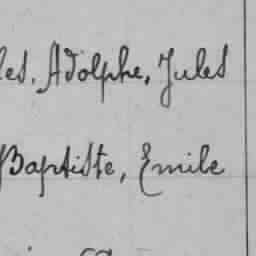 les, Adolphe, Jules
Baptiste, Emile